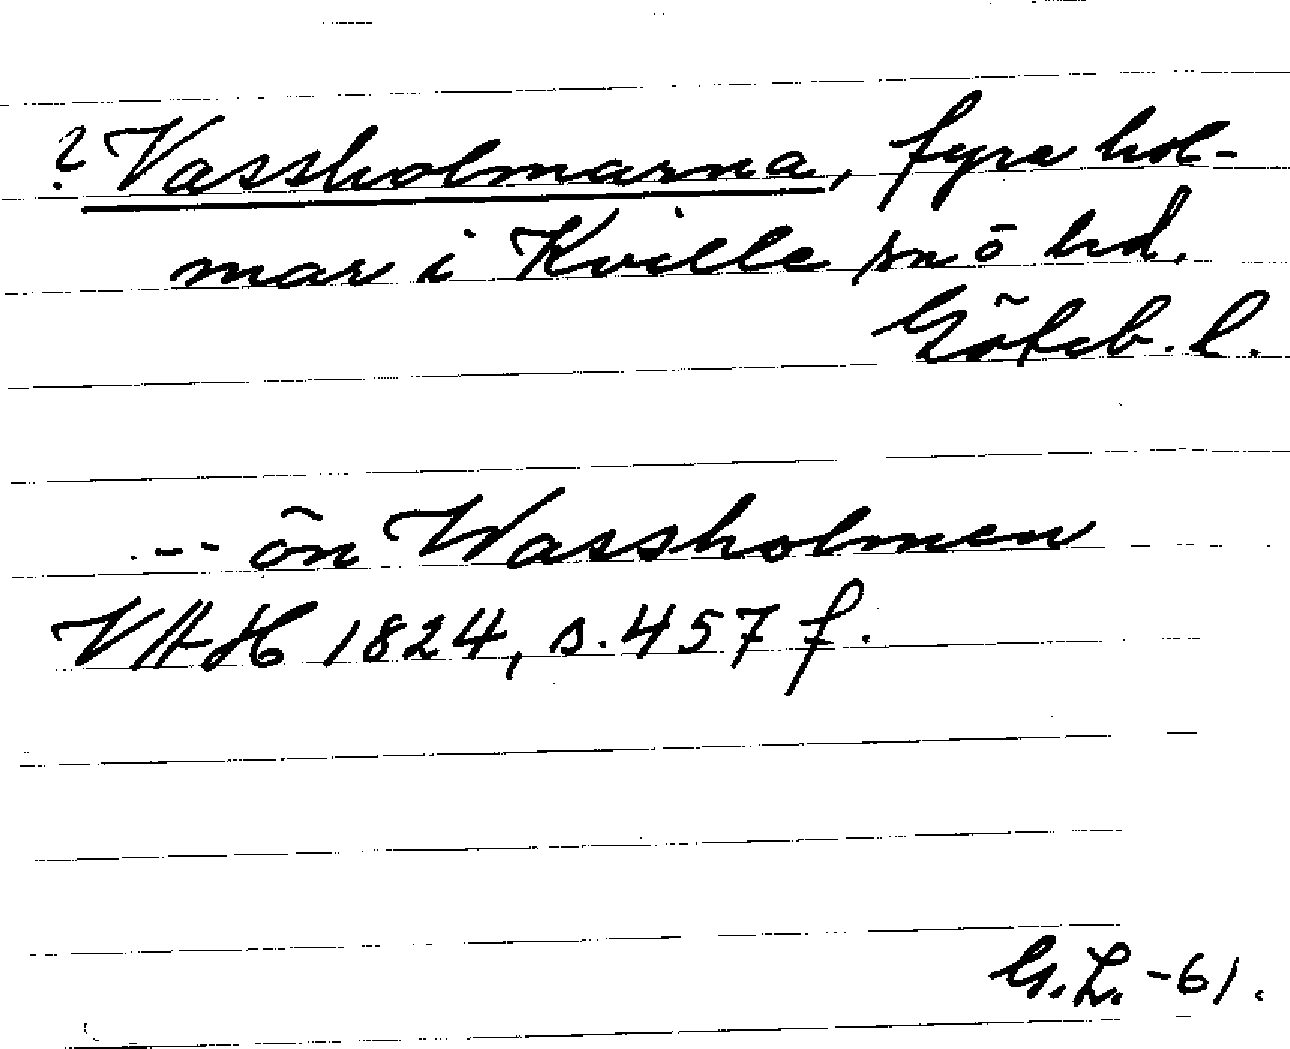 ? Vassholmarna, fyra hol-
mar i Kville sn o hd.
Göteb. l.
--- ön Wassholmen
VAH 1824, s. 457 f.
G. L. -61.